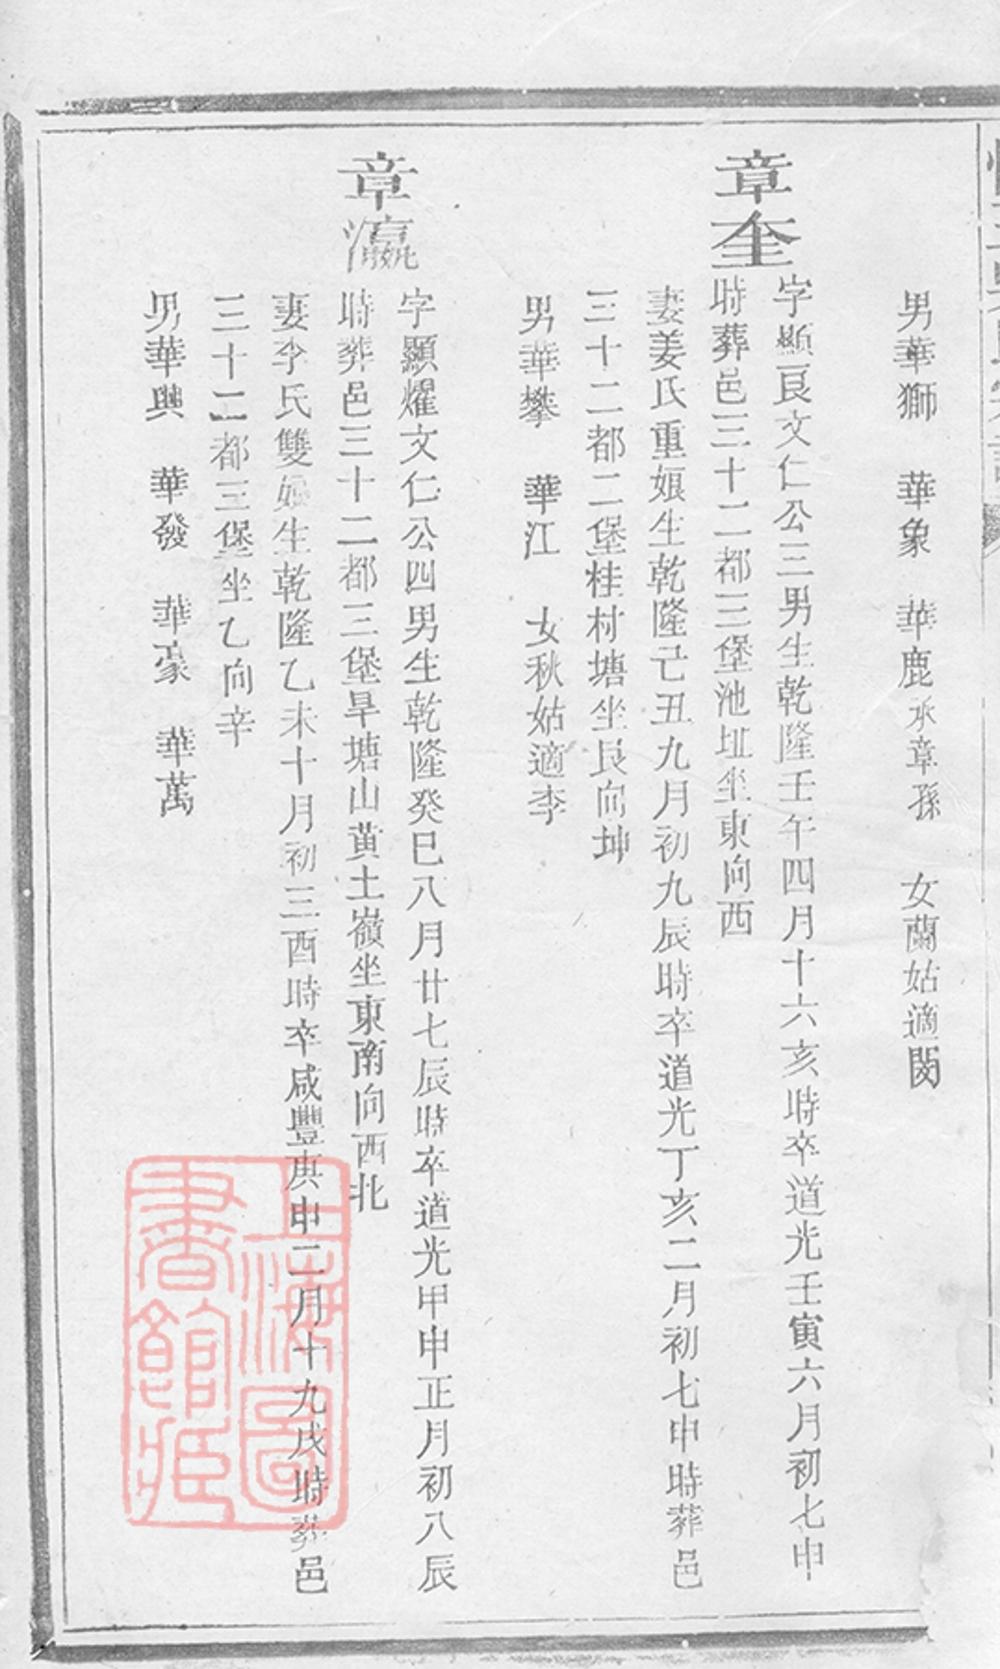 男華獅 華象 華鹿承章孫 女蘭姑適閔
章奎
字顯良文仁公三男生乾隆壬午四月十六亥時卒道光壬寅六月初七申
時葬邑三十二都三堡池坵坐東向西
妻姜氏重娘生乾隆己丑九月初九辰時卒道光丁亥二月初七申時葬邑
三十二都二堡桂村塘坐艮向坤
男華攀 華江 女秋姑適李
章瀛
字顯耀文仁公四男生乾隆癸巳八月廿七辰時卒道光甲申正月初八辰
時葬邑三十二都三堡旱塘山黄土嶺坐東南向西北
妻李氏雙娘生乾隆乙未十月初三酉時卒咸豐庚申二月十九戌時葬邑
三十二都三堡坐乙向辛
男華興 華發 華豪 華萬
上海圖書館藏